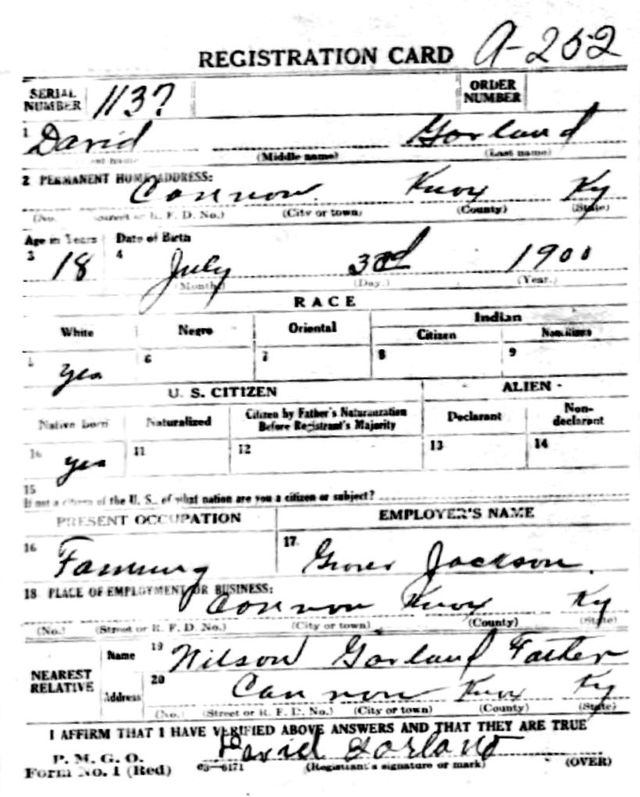 REGISTRATION CARD A-252
SERIAL NUMBER 1137 ORDER NUMBER
1 David Garland
(Middle name) (Last name)
2 PERMANENT HOME ADDRESS: Cannon Knox Ky
(No.) (Street or R. F. D. No.) (City or town) (County) (State)
Age in Years Date of Birth
3 18 4 July 3rd 1900
(Month) (Day) (Year)
RACE
White Negro Oriental Indian
Citizen Noncitizen
5 yes 6 7 8 9
U. S. CITIZEN ALIEN
Native born Naturalized Citizen by Father's Naturalization Before Registrant's Majority Declarant Non-declarant
10 yes 11 12 13 14
15
If not a citizen of the U. S., of what nation are you a citizen or subject?
PRESENT OCCUPATION EMPLOYER'S NAME
16 Farming 17 Grover Jackson.
18 PLACE OF EMPLOYMENT OR BUSINESS: Cannon Knox Ky
(No.) (Street or R. F. D. No.) (City or town) (County) (State)
NEAREST RELATIVE Name 19 Wilson Garland Father
Address 20 Cannon Knox Ky
(No.) (Street or R. F. D. No.) (City or town) (County) (State)
I AFFIRM THAT I HAVE VERIFIED ABOVE ANSWERS AND THAT THEY ARE TRUE
P. M. G. O. David Garland
Form No. 1 (Red) 03-6171 (Registrant's signature or mark) (OVER)